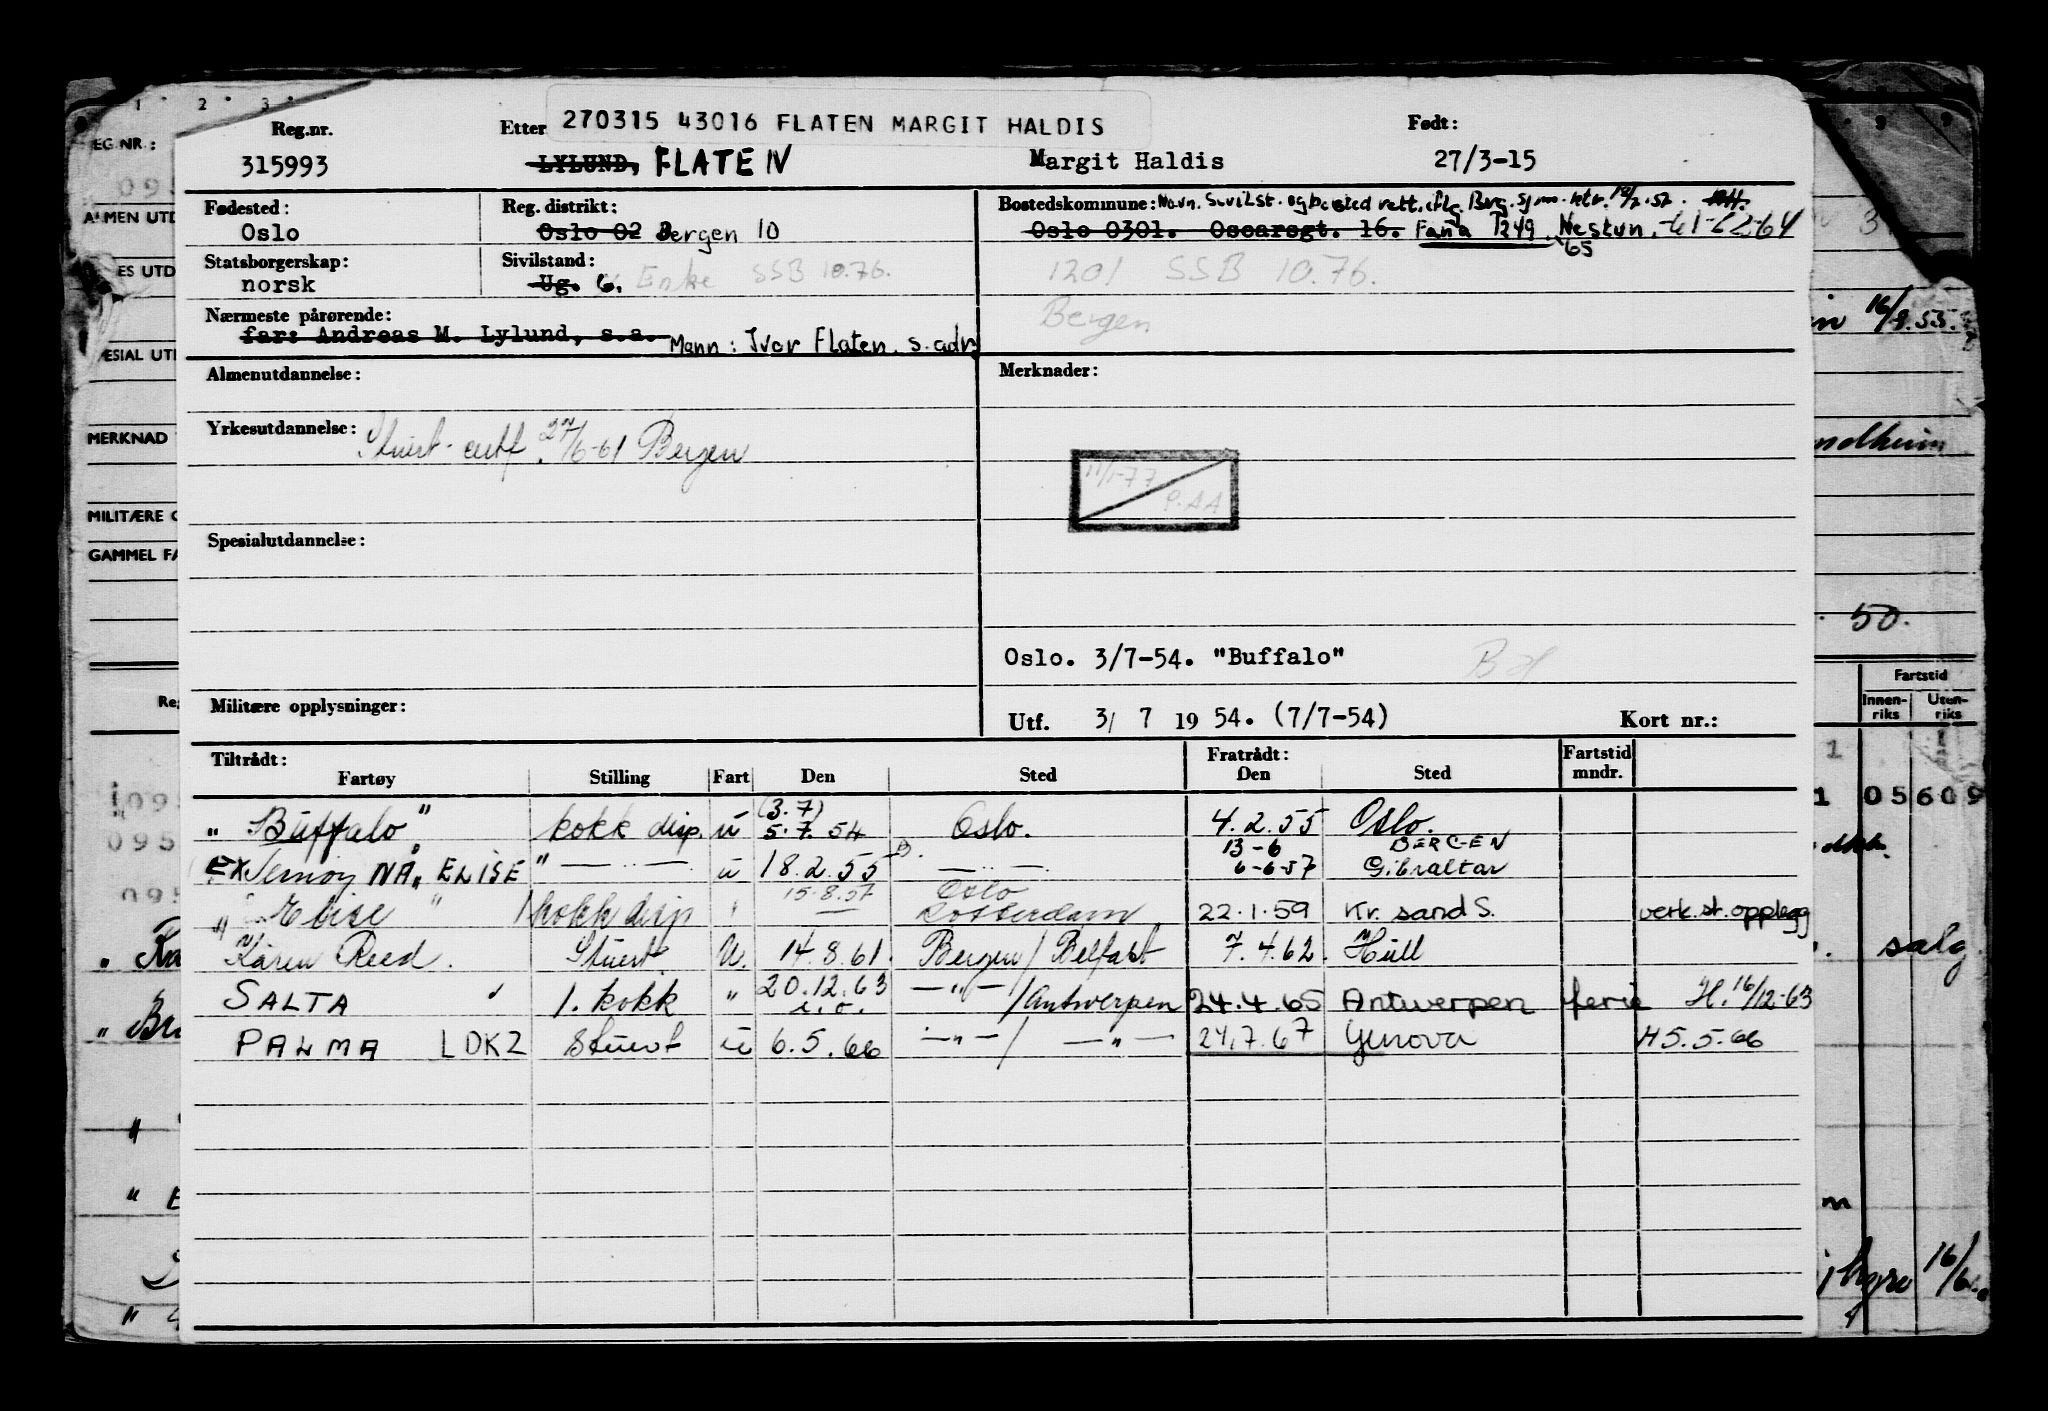 Reg.nr. Etter 270315 43016 FLATEN MARGIT HALDIS Født:
315993 LYLUND, FLATEN Margit Haldis 27/3-15
Fødested: Reg. distrikt: Bostedskommune: Navn. Sivilst. og bosted rett. ifLg. Brg. Sjm.ktr. 12/2.57.
Oslo Oslo 02 Bergen 10 Oslo 0301. Oscarsgt. 16. Fana 1249 Nestun. 61-62-64
65
Statsborgerskap: Sivilstand:
norsk Ug. G. Enke SSB 10.76. 1201 SSB 10.76.
Bergen
Nærmeste pårørende:
far: Andreas M. Lylund, s.a. Mann: Ivar Flaten. s. adr.
Almenutdannelse: Merknader:
Yrkesutdannelse: Stuert-certf. 27/6-61 Bergen
11/1-77
P.AA
Spesialutdannelse:
Oslo. 3/7-54. "Buffalo" BH
Militære opplysninger: Utf. 3/ 7 19 54. (7/7-54) Kort nr.:
Tiltrådt: Fratrådt: Fartstid
Fartøy Stilling Fart Den Sted Den Sted mndr.
(3.7)
" Buffalo " kokk disp. u 5.7.54 Oslo. 4.2.55 Oslo.
13-6 BERGEN
EX NÅ " ELISE " — " — u 18.2.55 — " — 6-6-57 Gibraltar
15.8.57 Oslo
" Elise " kokk disp " — Rotterdam 22.1.59 Kr. sand S. verk.st. opplegg
Karen Reed. Stuert U. 14.8.61. Bergen/ Belfast 7.4.62. Hull
SALTA " 1. kokk " 20.12.63 — " — /Antwerpen 24.4.65 Antwerpen ferie H. 16/12-63
PALMA LDKZ Stuert u 6.5.66 — " — / — " — 24.7.67 Genova H5.5.66
1 2 3
REG.NR.:
095
ALMEN UTD
MERKNAD
GAMMEL FA
16/9.53.
50.
Fartstid
Innen-
riks
Uten-
riks
1
1 05609
095
salg
16/6